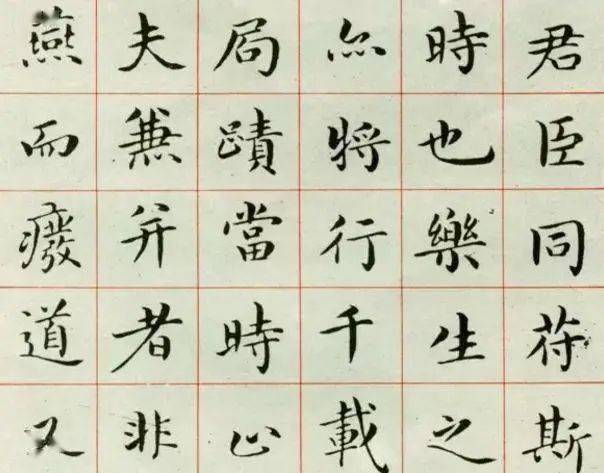 君臣同苻斯
時也樂生之
亦將行千載
局蹟當時止
夫兼并者非
燕而癈道又